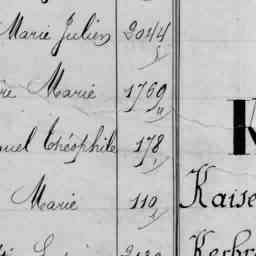 Marie Julien 2044
Marie 1769
uel Théophile 178
Marie 110
K
Kaise
Kerbr